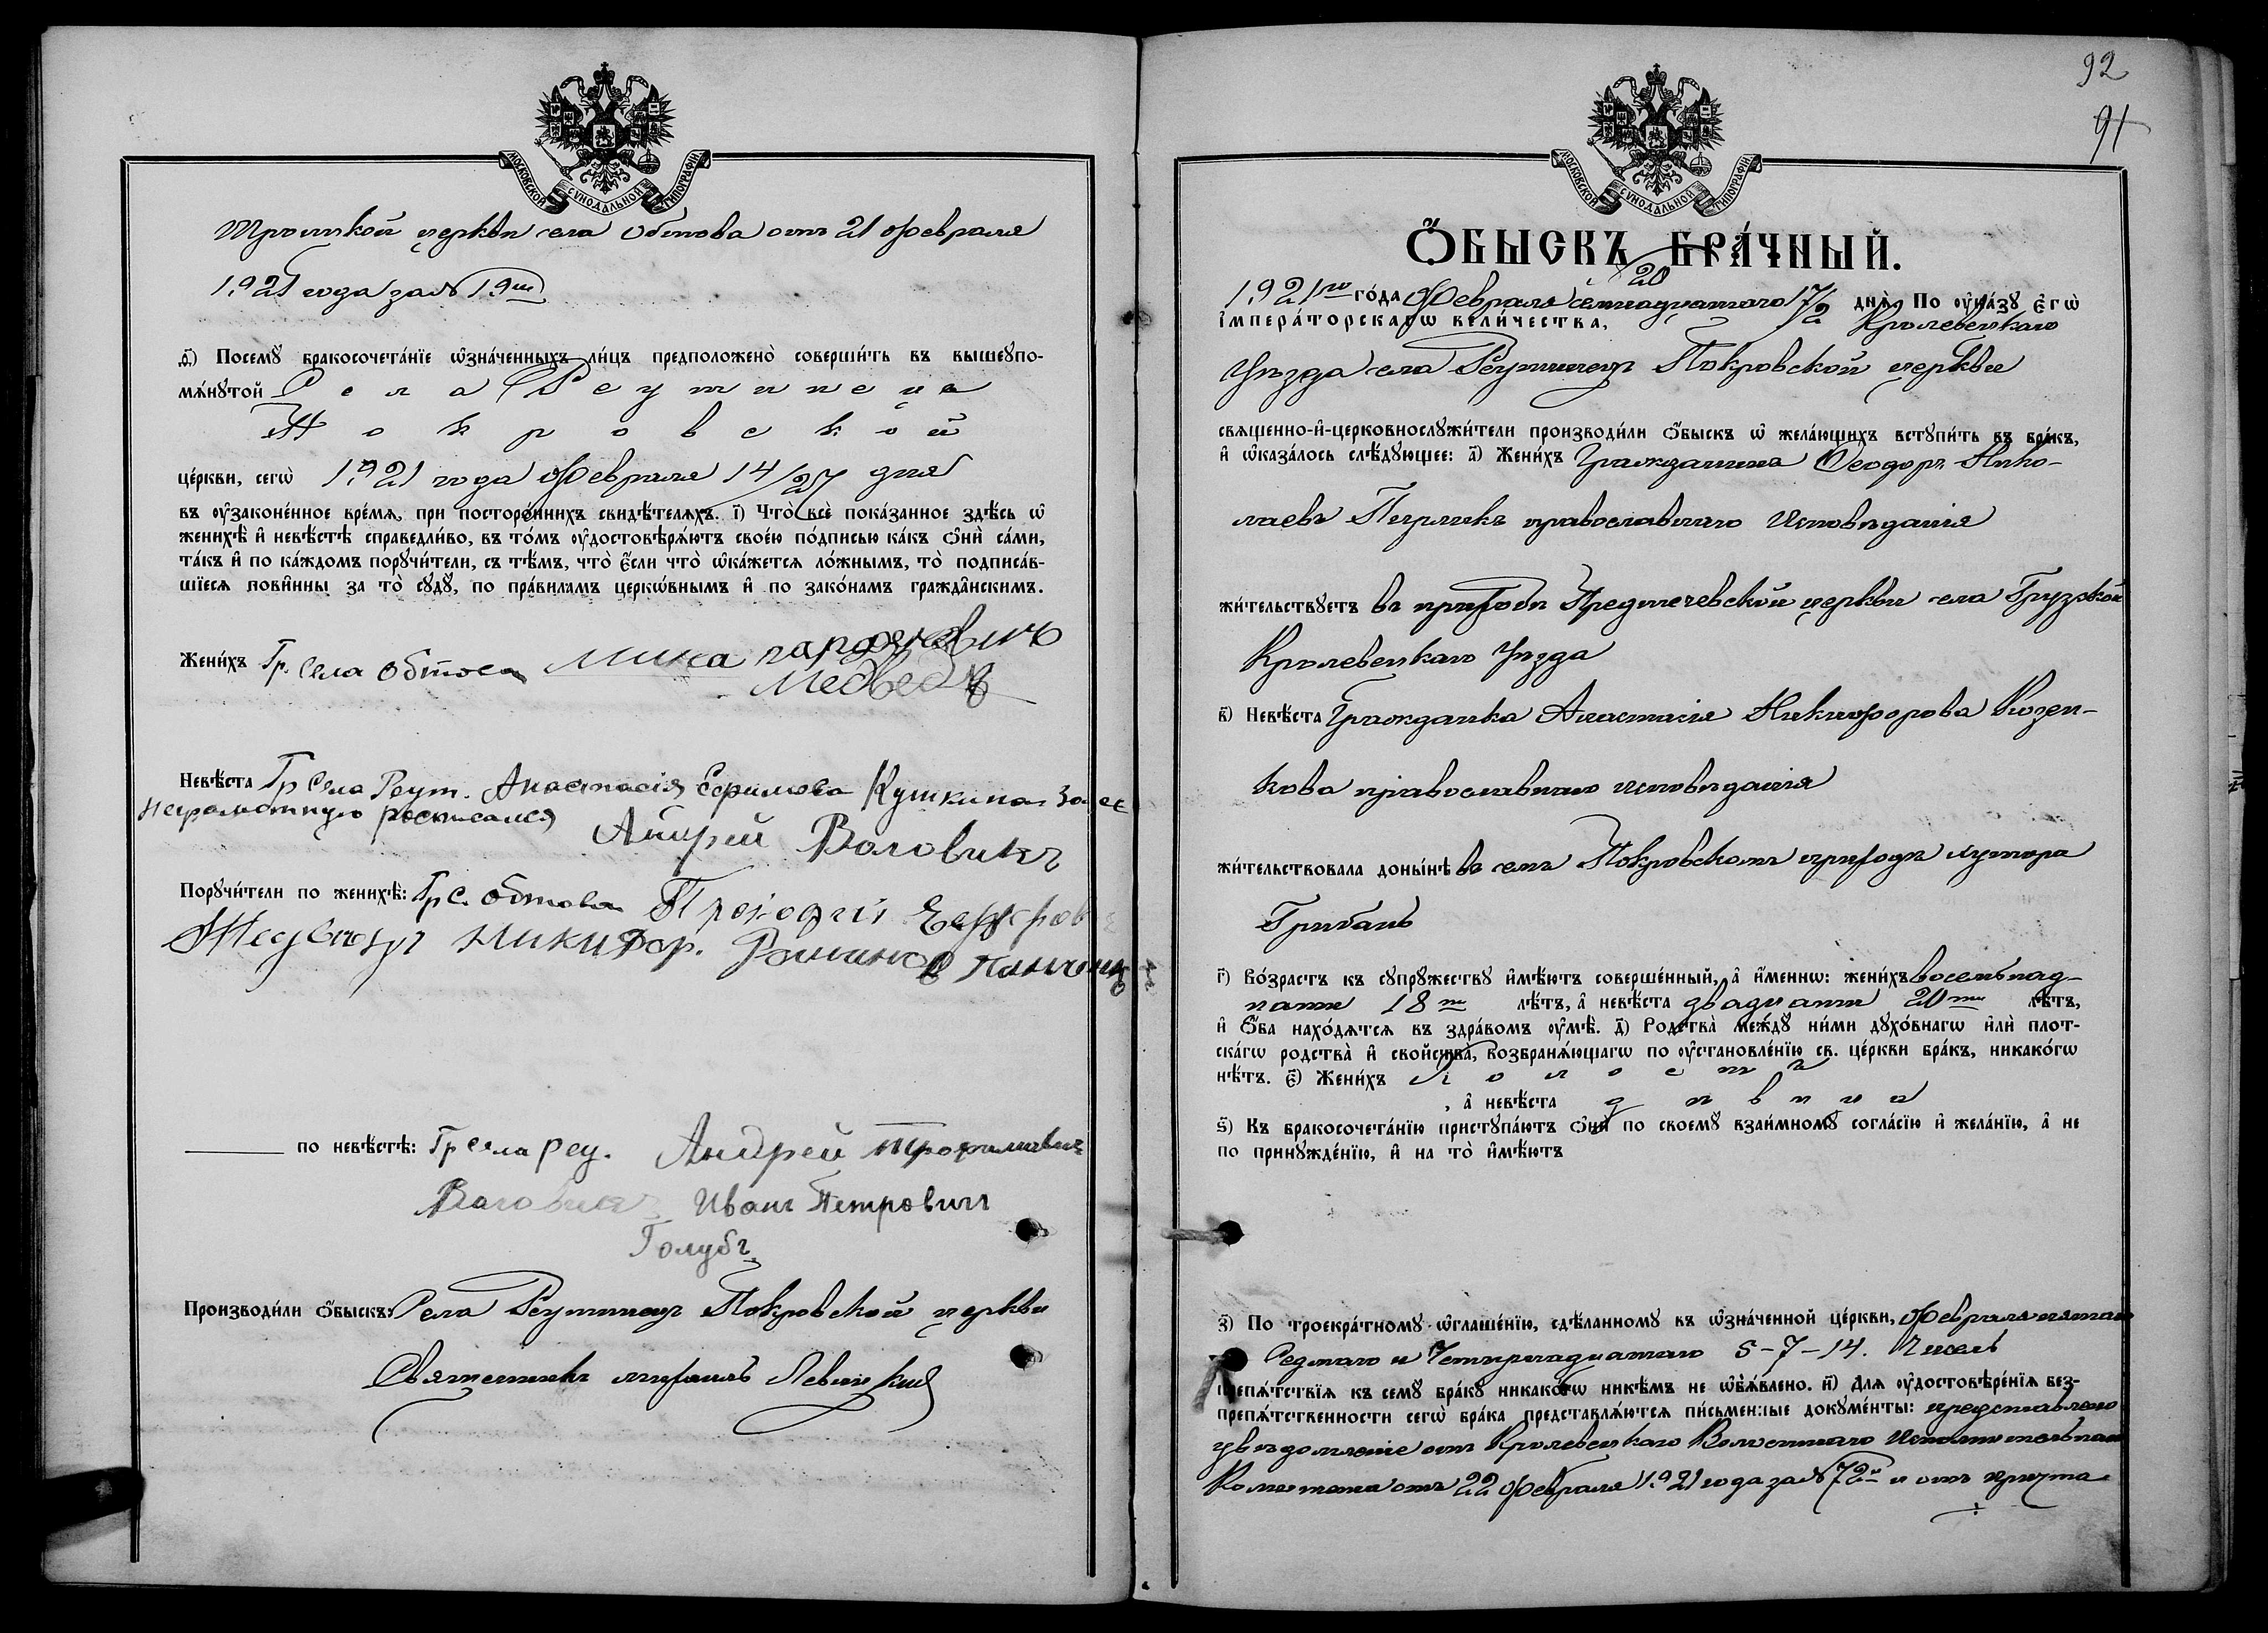 МОСКОВСКОЙ СѴНОДАЛЬНОЙ ТИПОГРАФІИ
Троицкой церкви села Обтова отъ 21 февраля
1921 года за № 19ш
д҃) Посемꙋ̀ бракосочета́нїе ѡ҆зна́ченныхъ ли́цъ предположено̀ соверши́ть въ вышеꙋпо-
мѧ́нꙋтой Села Реутинецъ
Покровской
це́ркви, сегѡ̀ 1921 года февраля 14/27 дня
въ ᲂу҆зако́ненное вре́мѧ, при посторо́ннихъ свидѣ́телѧхъ. і҃) Что̀ всѐ пока́занное здѣ́сь ѡ҆
женихѣ̀ и҆ невѣ́стѣ справедли́во, въ то́мъ ᲂу҆достовѣрѧ́ютъ свое́ю по́дписью ка́къ ѻ҆нѝ са́ми,
та́къ и҆ по ка́ждомъ порꙋчи́тели, съ тѣ́мъ, что̀ є҆́сли что̀ ѡ҆ка́жетсѧ ло́жнымъ, то̀ подписа́в-
шїесѧ пови́нны за то̀ сꙋдꙋ̀, по пра́виламъ церкѡ́внымъ и҆ по зако́намъ гражда́нскимъ.
Жени́хъ Гр. Села Обтова Мина
Медведь
Невѣ́ста Гр Села Реут. Анастасія Ефимова Кушкина За ее
неграмотную росписался Андрей Воловикъ
Порꙋчи́тели по женихѣ̀: Гр с. Обтова Прокофій
Медведь Никифор. Романов
по невѣ́стѣ: Гр села Реу. Андрей Трофимовичъ
Воловикъ Иванъ Петровичъ
Голубъ
Производи́ли ѻ҆́быскъ: Села Реутинецъ Покровской церкви
Священникъ Михаилъ Левицкій
92
91
МОСКОВСКОЙ СѴНОДАЛЬНОЙ ТИПОГРАФІИ
Ѻ҆́БЫСКЪ БРА́ЧНЫЙ.
20
1921го го́да Февраля семнадцатаго 17/2 днѧ̀, По ᲂу҆ка́зꙋ є҆гѡ̀
і҆мпера́торскагѡ вели́чества, Кролевецкаго
Уѣзда села Реутинецъ Покровской церкви
свѧщенно-и҆-церковнослꙋжи́тели производи́ли ѻ҆́быскъ ѡ҆ жела́ющихъ встꙋпи́ть въ бра́къ,
и҆ ѡ҆каза́лось слѣ́дꙋющее: а҃) Жени́хъ Гражданина Ѳеодоръ Нико-
лаевъ Пирликъ православнаго Исповѣданія
жи́тельствꙋетъ въ приходѣ Предтечевской церкви села Грузской
Кролевецкаго Уѣзда
в҃) Невѣ́ста Гражданка Анастасія Никифорова Козен-
кова православнаго исповѣданія
жи́тельствовала доны́нѣ въ семъ Покровскомъ приходѣ хутора
Грибань
г҃) Во́зрастъ къ сꙋпрꙋ́жествꙋ и҆мѣ́ютъ соверше́нный, а҆ и҆́меннѡ: жени́хъ восемьнад-
цати 18ти лѣ́тъ, а҆ невѣ́ста двадцати 20ти лѣ́тъ,
и҆ ѻ҆́ба нахо́дѧтсѧ въ здра́вомъ ᲂу҆мѣ̀. д҃) Родства̀ ме́ждꙋ ни́ми дꙋхо́внагѡ и҆лѝ плот-
ска́гѡ родства̀ и҆ свойства̀, возбранѧ́ющагѡ по ᲂу҆становле́нїю св. це́ркви бра́къ, никако́гѡ
нѣ́тъ. є҃) Жени́хъ холостъ
, а҆ невѣ́ста дѣвица
ѕ҃) Къ бракосочета́нїю пристꙋпа́ютъ ѻ҆нѝ по своемꙋ̀ взаи́мномꙋ согла́сїю и҆ жела́нїю, а҆ не
по принꙋжде́нїю, и҆ на то̀ и҆мѣ́ютъ
з҃) По троекра́тномꙋ ѡ҆глаше́нїю, сдѣ́ланномꙋ въ ѡ҆зна́ченной це́ркви, февраля пятаго
Седмаго и Четырнадцатаго 5-7-14. Чиселъ
препѧ́тствїѧ къ семꙋ̀ бра́кꙋ никако́гѡ никѣ́мъ не ѡ҆б̾ѧ́влено. и҃) Длѧ ᲂу҆достовѣре́нїѧ без-
препѧ́тственности сегѡ̀ бра́ка представлѧ́ютсѧ пи́сьменные докꙋме́нты: представлено
увѣдомленіе отъ Кролевецкаго Волостнаго Исполнительнаго
Комитета отъ 22 февраля 1921 года за № 72й и отъ причта